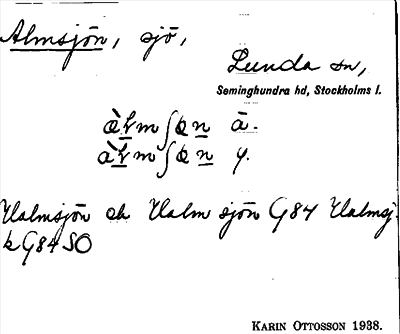 Almsjön, sjö,
Lunda sn,
Seminghundra hd, Stockholms l.
à.
y.
Ualmsjön ek Ualm sjön G84 Ualmsj.
k G84 SO
KARIN OTTOSSON 1938.